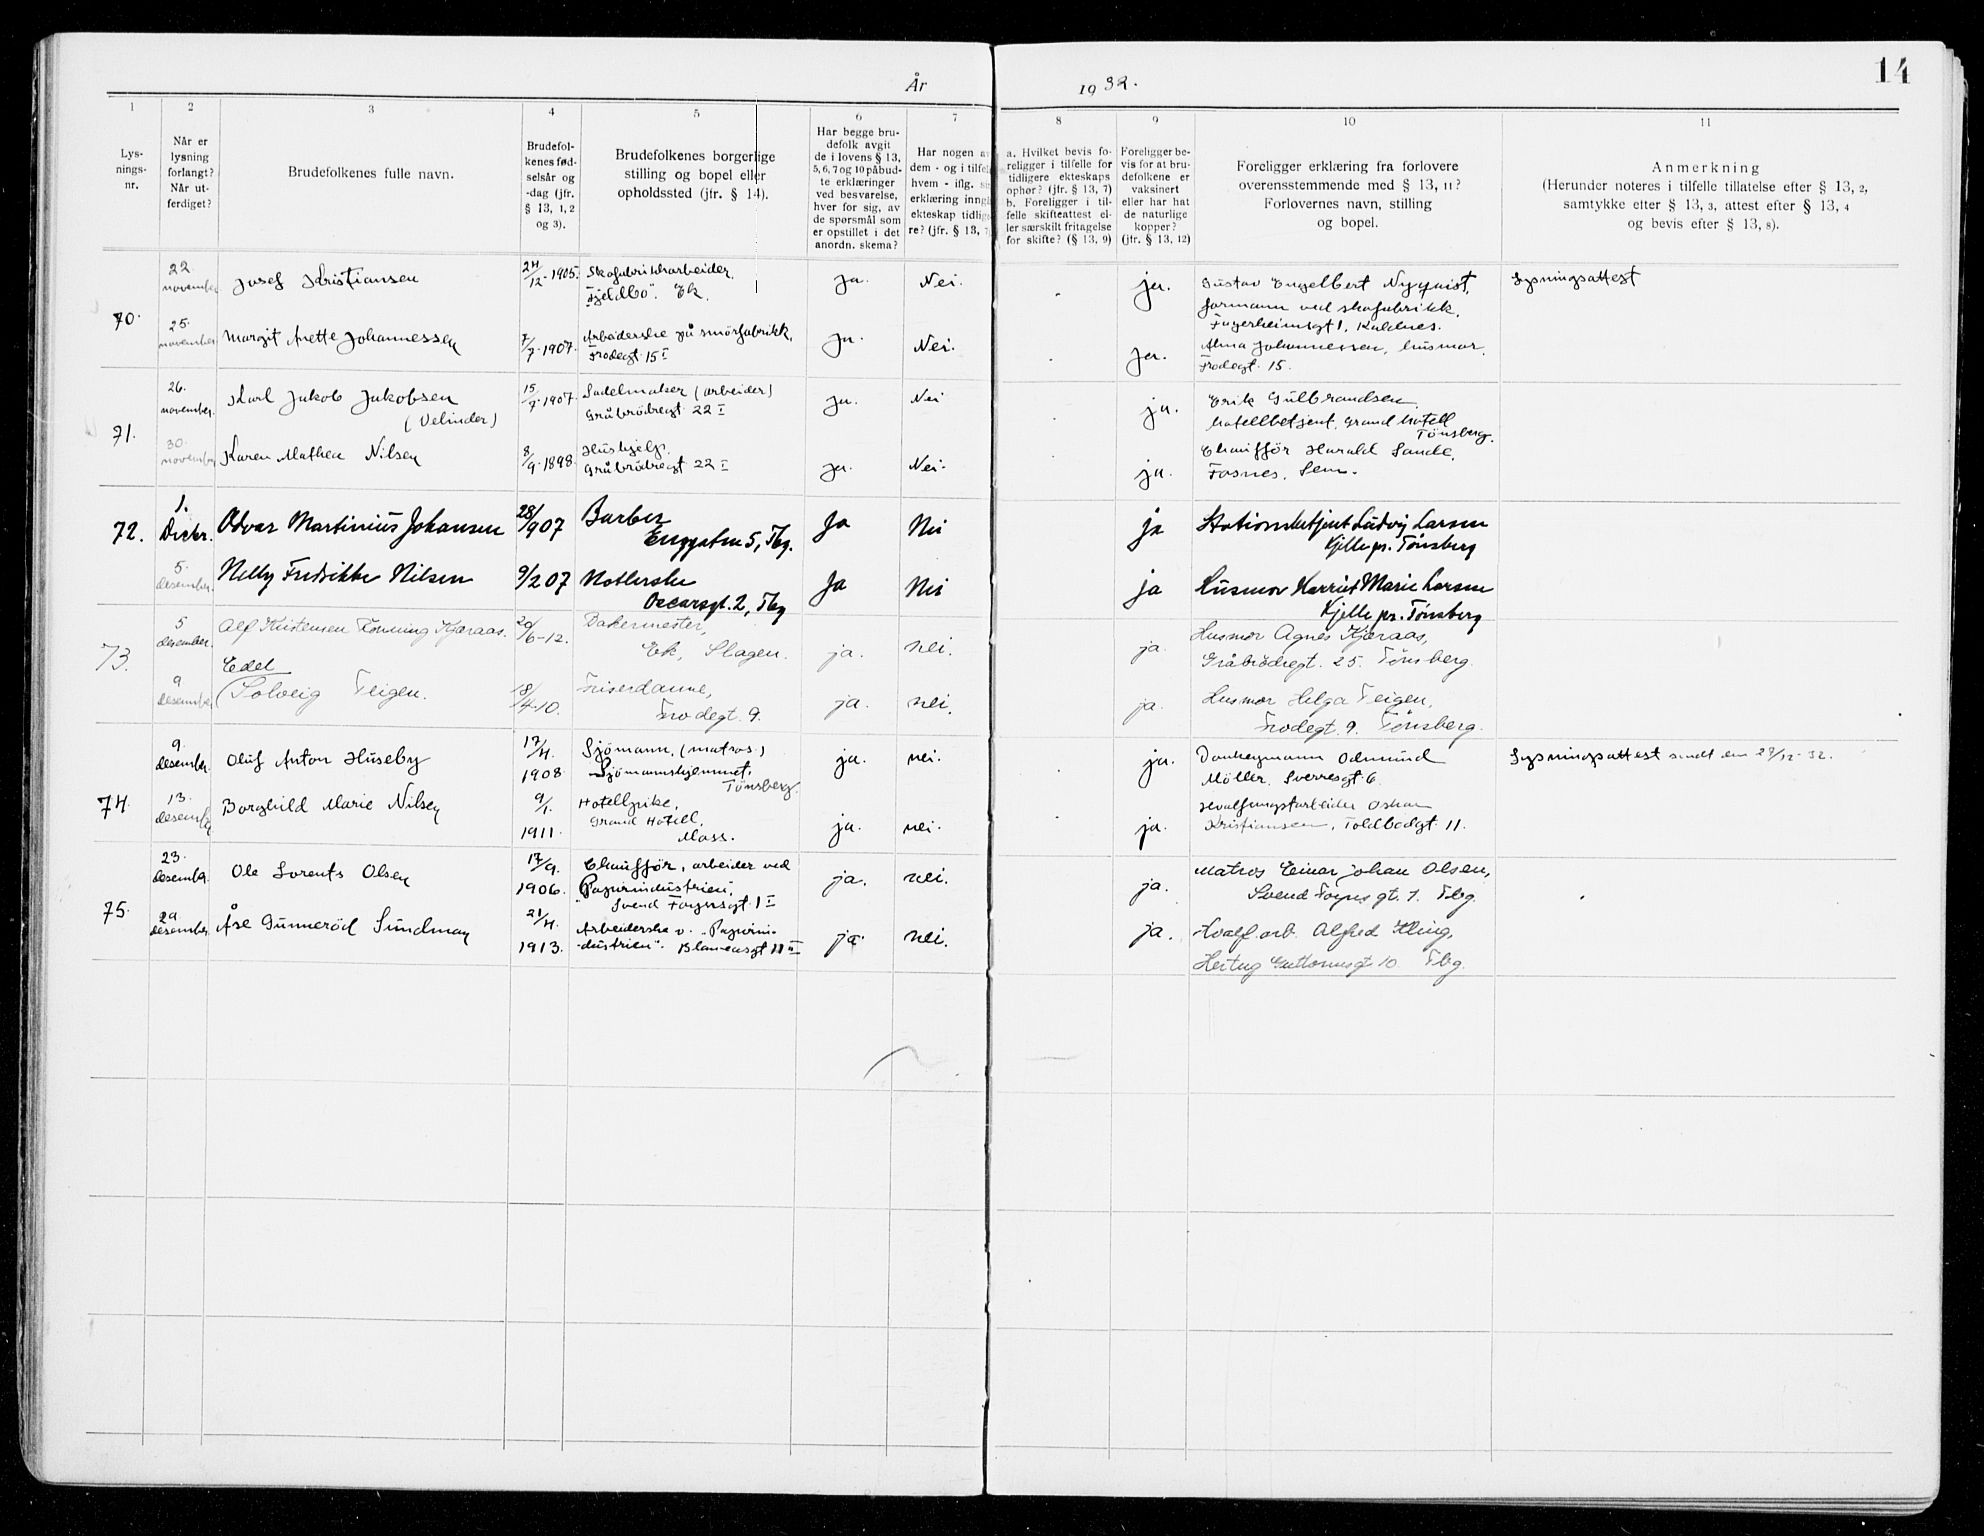 14
År 1932.
1 2 3 4 5 6 7 8 9 10 11
Lys-
nings-
nr.
Når er
lysning
forlangt?
Når ut-
ferdiget?
Brudefolkenes fulle navn.
Brudefol-
kenes fød-
selsår og
-dag (jfr.
§ 13, 1, 2
og 3).
Brudefolkenes borgerlige
stilling og bopel eller
opholdssted (jfr. § 14).
Har begge bru-
defolk avgit
de i lovens § 13,
5, 6, 7 og 10 påbud-
te erklæringer
ved besvarelse,
hver for sig, av
de spørsmål som
er opstillet i det
anordn. skema?
Har nogen a
dem - og i tilfel
hvem - iflg. s
erklæring inng
ekteskap tidlig
re? (jfr. § 13, 7
a. Hvilket bevis fo-
religger i tilfelle for
tidligere ekteskaps
ophør? (jfr. § 13, 7)
b. Foreligger i til-
felle skifteattest el-
ler særskilt fritagelse
for skifte? (§ 13, 9)
Foreligger be-
vis for at bru-
defolkene er
vaksinert
eller har hat
de naturlige
kopper?
(jfr. § 13, 12)
Foreligger erklæring fra forlovere
overensstemmende med § 13, 11?
Forlovernes navn, stilling
og bopel.
Anmerkning
(Herunder noteres i tilfelle tillatelse efter § 13, 2,
samtykke efter § 13, 3, attest efter § 13, 4
og bevis efter § 13, 8).
70.
22.
november
Josef Kristiansen
24/12-1905.
Skofabrikkarbeider.
"Fjeldbo". Ek.
ja. Nei. - ja.
Gustav Engelbert Nyqvist,
formann ved skofabrikk,
Fagerheimsgt 1, Kaldnes.
Lysningsattest
25.
november
Margit Anette Johannessen
7/7-1907.
Arbeiderske på smörfabrikk,
Frodegt 15 I
ja. Nei. - ja.
Alma Johannessen, husmor,
Frodegt. 15.
71.
26.
november.
Karl Jakob Jakobsen
(Velinder)
15/7-1907.
Sadelmaker (arbeider)
Gråbrödregt 22 I
ja. Nei - ja.
Erik Gulbrandsen
hotellbetjent, Grand hotell
Tönsberg.
30.
november
Karen Mathea Nilsen
8/9-1898.
Hushjelp.
Gråbrödregt 22 I
ja. Nei. ja.
Chaufför Harald Sande,
Fosnes, Sem.
72.
1.
Decbr.
Odvar Martinius Johansen
28/9 07
Barber
Enggaten 5, Tbg.
Ja Nei ja
Stationsbetjent Ludvig Larsen
Kjelle pr. Tönsberg
5.
desember.
Nelly Fredrikke Nilsen
9/2 07
Oscarsgt. 2, Tbg
Ja Nei ja
Husmor Harriet Marie Larsen
Kjelle pr. Tönsberg
73.
5
desember.
Alf Kristensen Kjæraas.
20/6-12.
Bakermester,
Ek, Slagen.
ja. nei. ja.
Husmor Agnes Kjæraas,
Gråbrödregt. 25. Tönsberg.
9
desember
Edel
(Solveig Teigen.
18/4-10.
Friserdame,
Frodegt. 9.
ja. nei. ja.
Husmor Helga Teigen,
Frodegt. 9. Tönsberg.
74.
9.
desember.
Oluf Anton Huseby
17/4.
1908
Sjömann, (matros)
Sjömannshjemmet,
Tönsberg.
ja. nei. - ja.
Odmund
Möller, Sverresgt 6.
Lysningsattest sendt den 29/12-32.
13.
desember
Borghild Marie Nilsen
9/1.
1911.
Hotellpike,
Grand Hotell,
Moss.
ja. nei. - ja.
Hvalfangstarbeider Oskar
Kristiansen, Toldbodgt 11.
75.
23.
desember.
Ole Lorents Olsen
17/9.
1906.
Chaufför, arbeider ved
"Papirindustrien",
Svend Foynsgt 1 I
ja. nei. ja.
Matros Einar Johan Olsen,
Svend Foyns gt. 1. Tbg.
29
desember
Åse Gunneröd Sundman
21/4.
1913.
Arbeiderske v. "Papirin-
dustrien".
ja. nei. ja.
Hvalf.arb. Alfred Kling,
Hertug Guttormsgt 10 Tbg.